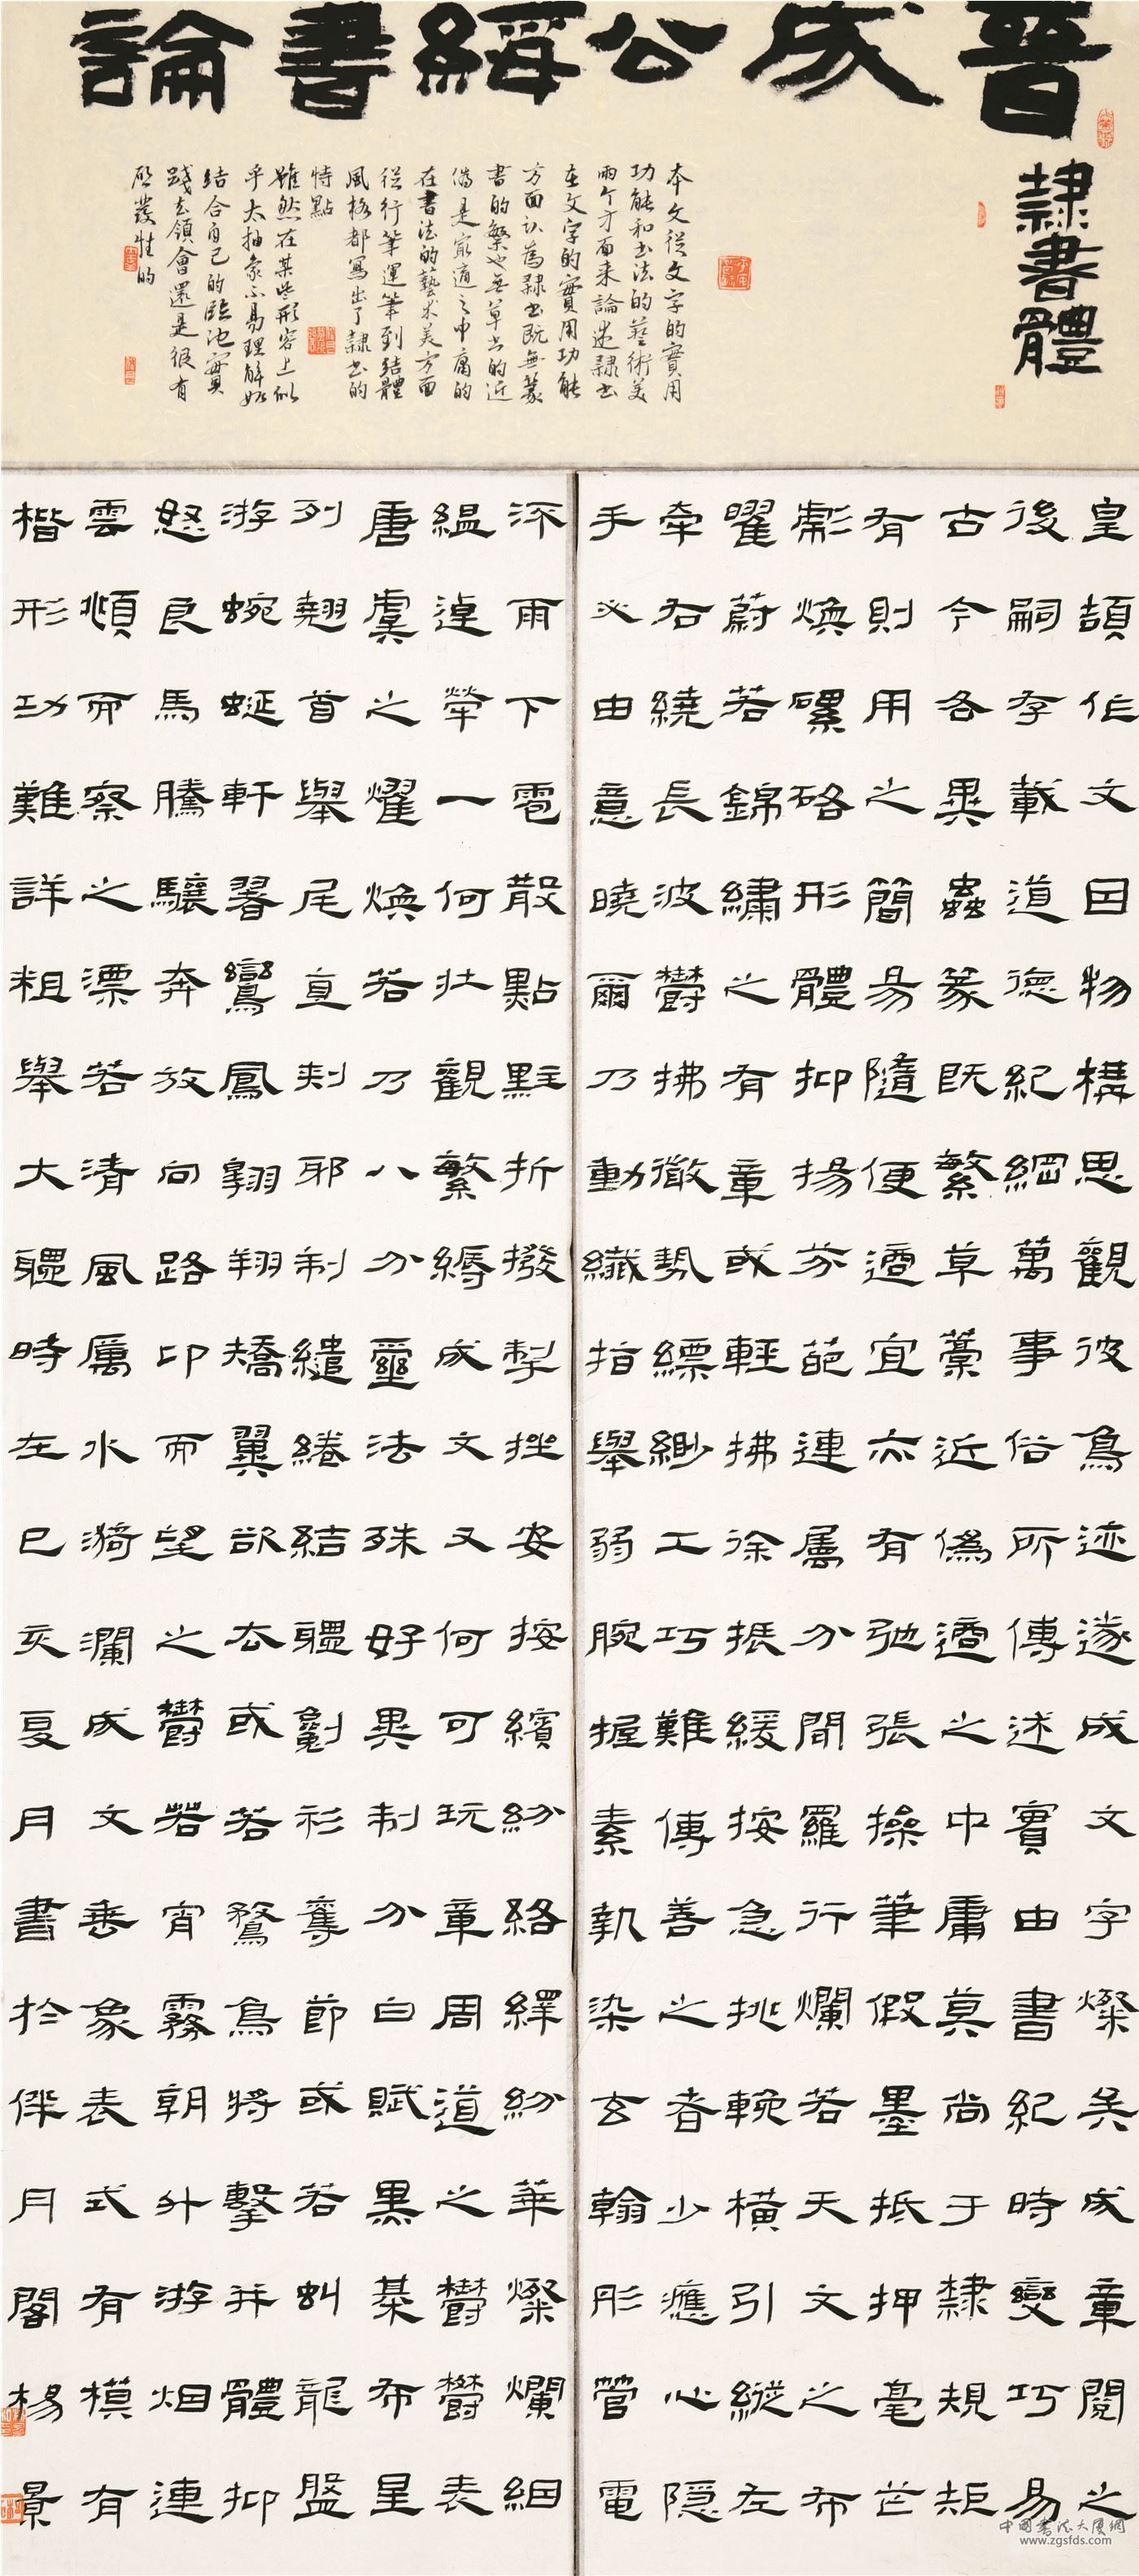 晉成公綏書論
隸書體
本文從文字的實用
功能和书法的藝術美
兩个方面来論述隸书
在文字的實用功能
方面认為隸书既無篆
書的繁也無草书的近
偽是最適之中庸的
在書法的藝术美方面
從行筆運筆到結體
風格都寫出了隸书的
特點
雖然在某些形容上似
乎太抽象不易理解如
結合自己的臨池實
踐去領會還是很有
启發性的
皇頡作文因物構思觀彼鳥迹遂成文字燦矣成章閱之
後嗣存載道德紀綱萬事俗所傳述實由書紀時變巧易
古今各異蟲篆既繁草藁近偽適之中庸莫尚于隸規矩
有則用之簡易隨便適宜亦有弛張操筆假墨抵押毫芒
彪煥磥硌形體抑揚芬葩連屬分間羅行爛若天文之布
曜蔚若錦繡之有章或輕拂徐振緩按急挑挽橫引縱左
牽右繞長波鬱拂微勢縹緲工巧難傳善之者少應心隱
手必由意曉爾乃動纖指舉弱腕握素執染玄翰彤管電
流雨下雹散點黈折撥掣挫安按繽紛絡繹紛華燦爛絪
緼逴犖一何壯觀繁縟成文又何可玩章周道之鬱鬱表
唐虞之燿煥若乃八分璽法殊好異制分白賦黑棊布星
列翹首舉尾直刺邪制繾綣結軆劖衫奪節或若虯龍盤
游蜿蜒軒翥鸞鳳翱翔矯翼欲去或若鷙鳥將擊并體抑
怒良馬騰驤奔放向路卬而望之鬱若宵霧朝升游烟連
雲頫而察之漂若清風厲水漪瀾成文垂象表式有模有
楷形功難詳粗舉大軆時在巳亥夏月書於伴月閣楊景
中国书法大厦網
www.zgsfds.com